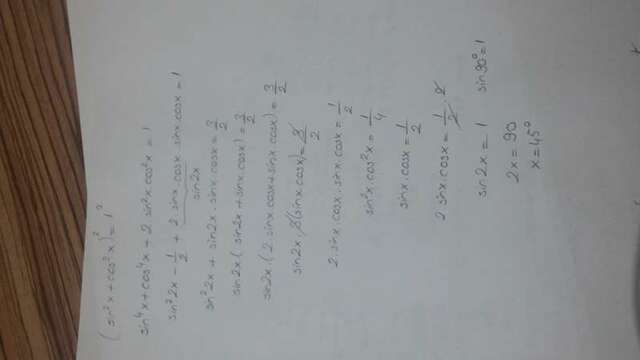 (sin²x+cos²x)²=1²
sin⁴x+cos⁴x+2 sin²x.cos²x=1
sin²2x-1/2+2.sinx.cosx.sinx.cosx=1
sin2x
sin²2x+sin2x.sinx.cosx=3/2
sin2x(sin2x+sinx.cosx)=3/2
sin2x.(2 sinx.cosx+sinx.cosx)=3/2
sin2x.3(sinx.cosx)=3/2
2.sinx.cosx.sinx.cosx=1/2
sin²x.cos²x=1/4
sinx.cosx=1/2
2 sinx.cosx=1/2.2
sin2x=1 sin90°=1
2x=90
x=45°